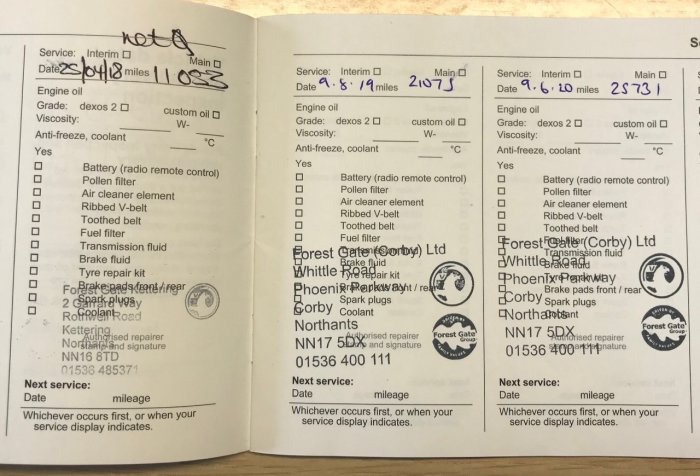 not
Service: Interim ☐
Main ☐
Date 25/04/18 miles 11083
Engine oil
Grade: dexos 2 ☐ custom oil ☐
Viscosity: W-
Anti-freeze, coolant °C
Yes
☐ Battery (radio remote control)
☐ Pollen filter
☐ Air cleaner element
☐ Ribbed V-belt
☐ Toothed belt
☐ Fuel filter
☐ Transmission fluid
☐ Brake fluid
☐ Tyre repair kit
☐ Brake pads front / rear
☐ Spark plugs
☐ Coolant
Forest Gate Kettering
2 Garrard Way
Rothwell Road
Kettering
Northants
NN16 8TD
01536 485371
Authorised repairer
stamp and signature
Next service:
Date mileage
Whichever occurs first, or when your
service display indicates.
Service: Interim ☐ Main ☐
Date 9.8.19 miles 21075
Engine oil
Grade: dexos 2 ☐ custom oil ☐
Viscosity: W-
Anti-freeze, coolant °C
Yes
☐ Battery (radio remote control)
☐ Pollen filter
☐ Air cleaner element
☐ Ribbed V-belt
☐ Toothed belt
☐ Fuel filter
☐ Transmission fluid
☐ Brake fluid
☐ Tyre repair kit
☐ Brake pads front / rear
☐ Spark plugs
☐ Coolant
Forest Gate (Corby) Ltd
Whittle Road
Phoenix Parkway
Corby
Northants
NN17 5DX
01536 400 111
Forest Gate
Group
Authorised repairer
stamp and signature
Next service:
Date mileage
Whichever occurs first, or when your
service display indicates.
S
Service: Interim ☐ Main ☐
Date 9.6.20 miles 25731
Engine oil
Grade: dexos 2 ☐ custom oil ☐
Viscosity: W-
Anti-freeze, coolant °C
Yes
☐ Battery (radio remote control)
☐ Pollen filter
☐ Air cleaner element
☐ Ribbed V-belt
☐ Toothed belt
☐ Fuel filter
☐ Transmission fluid
☐ Brake fluid
☐ Tyre repair kit
☐ Brake pads front / rear
☐ Spark plugs
☐ Coolant
Forest Gate (Corby) Ltd
Whittle Road
Phoenix Parkway
Corby
Northants
NN17 5DX
01536 400 111
Forest Gate
Group
Authorised repairer
stamp and signature
Next service:
Date mileage
Whichever occurs first, or when your
service display indicates.